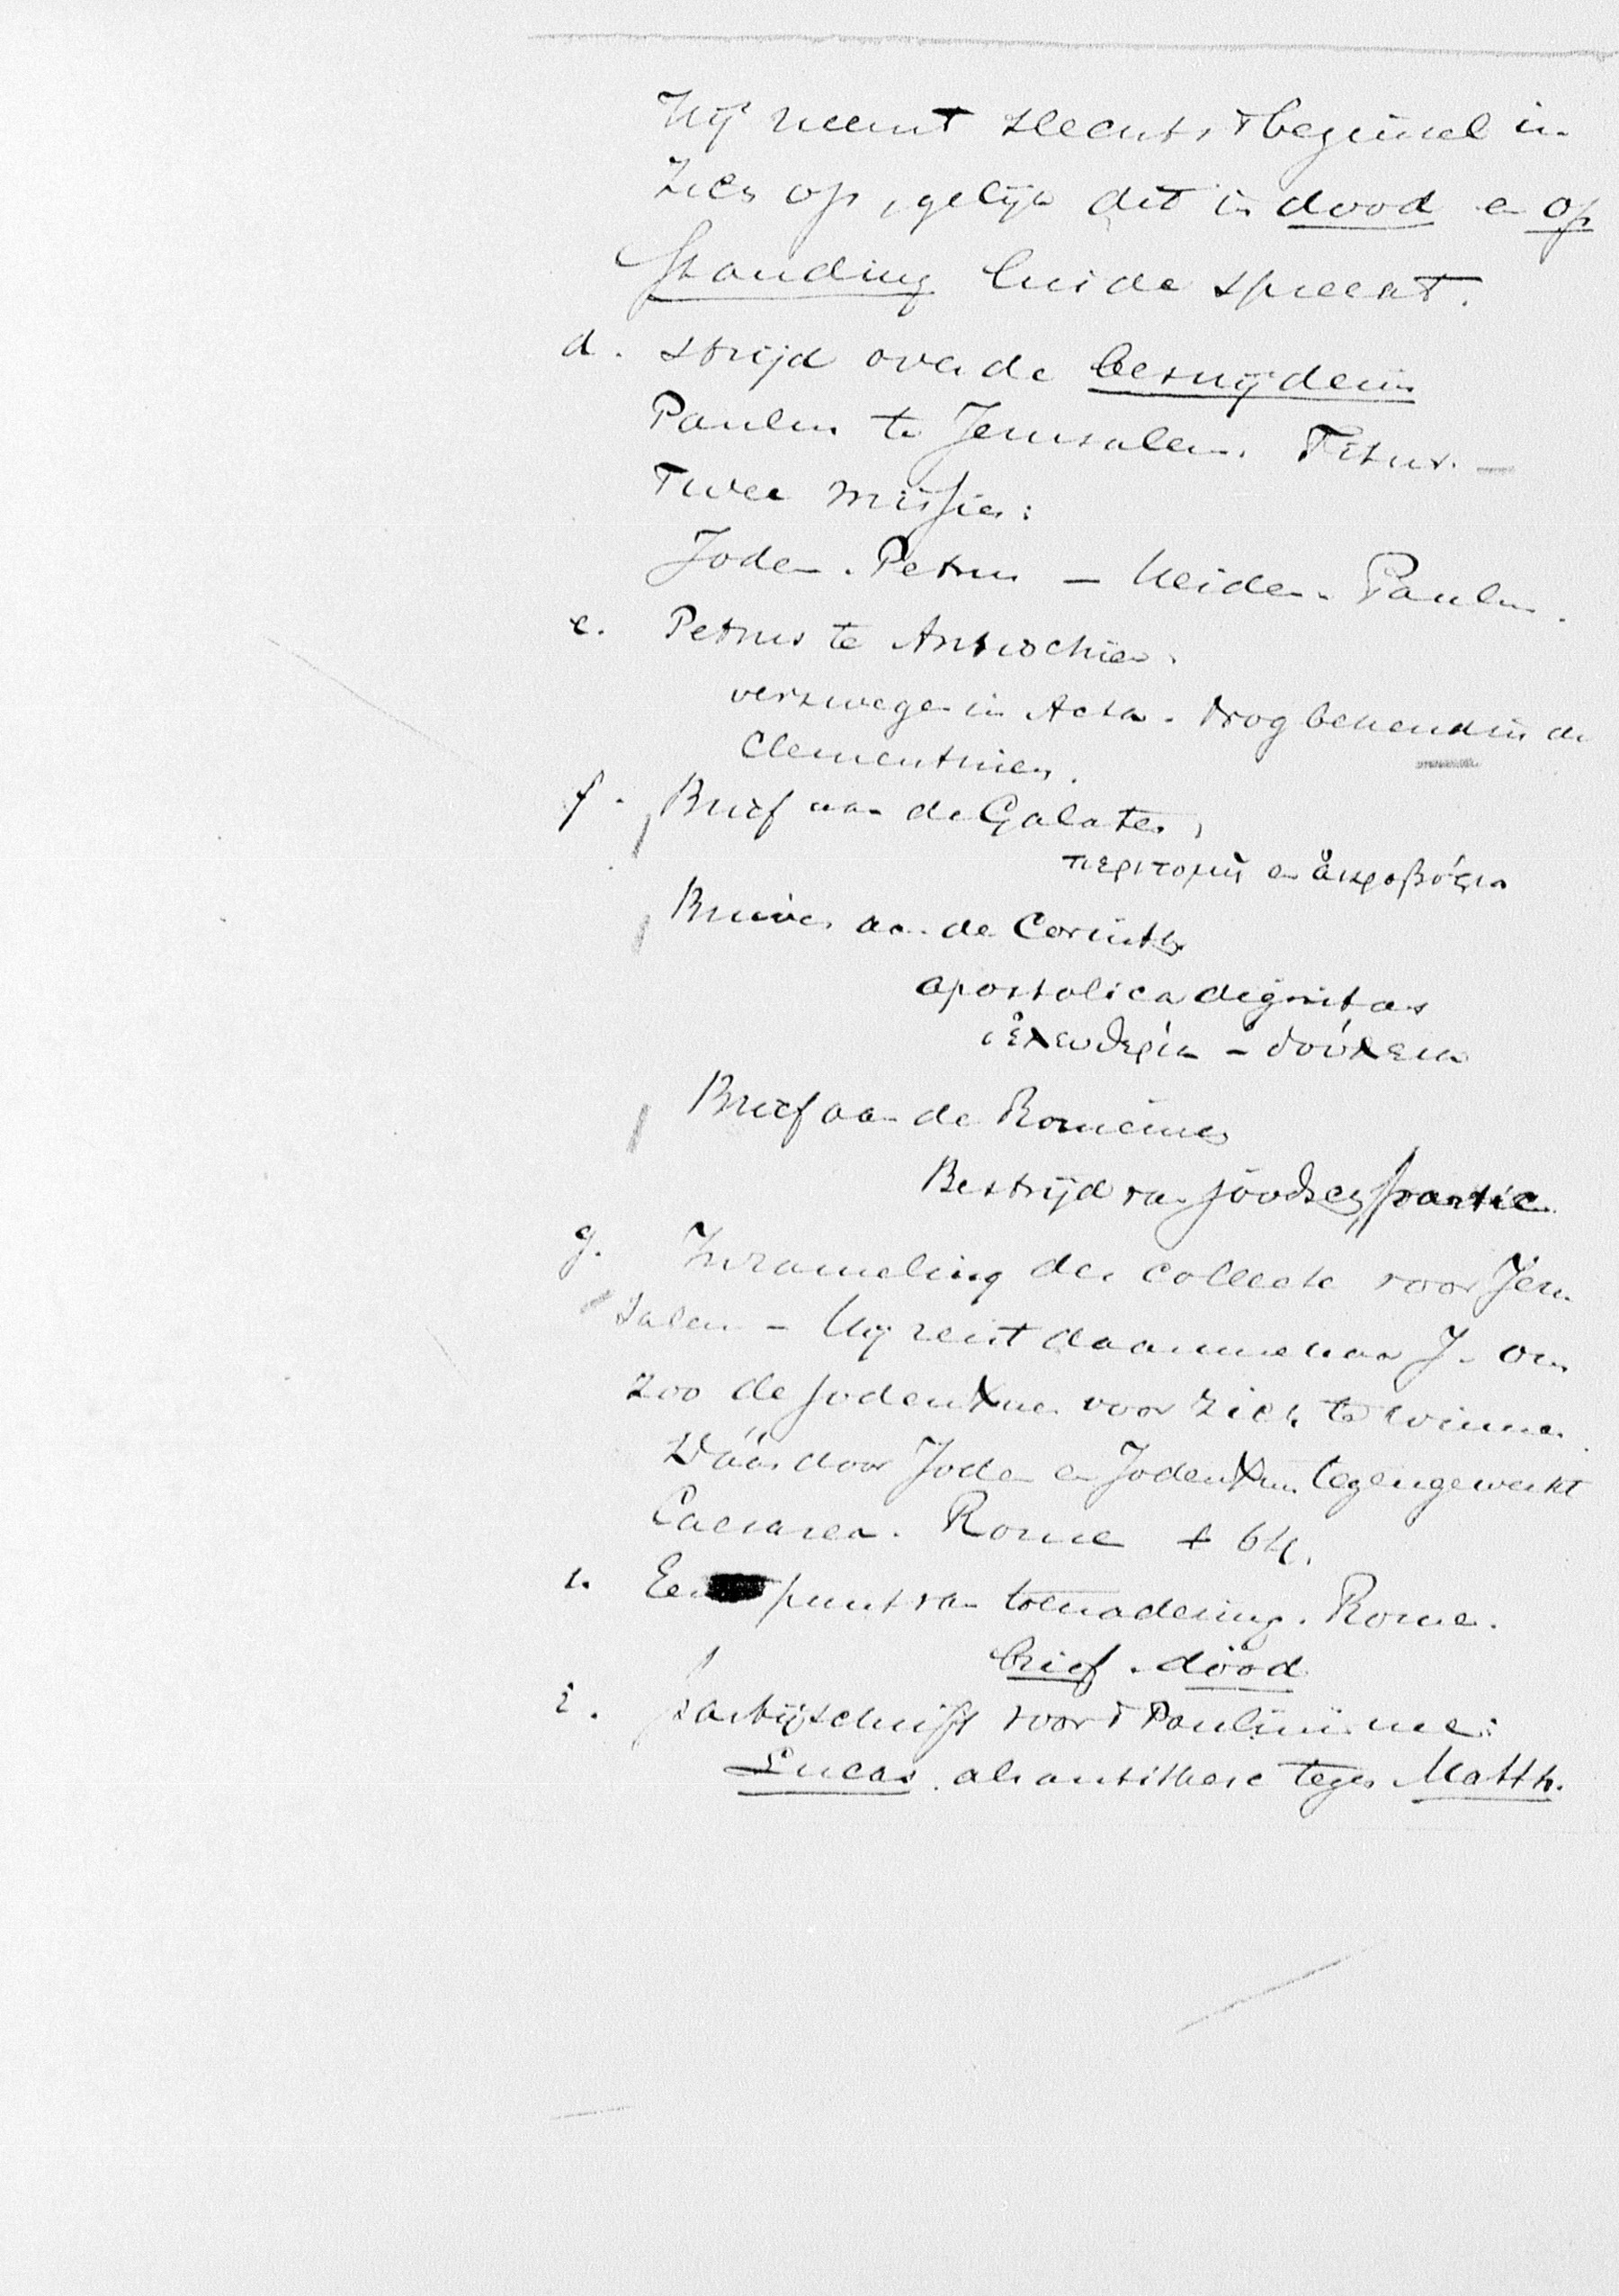 Hij neemt slechts 't beginsel in
zich op, gelijk dit in dood en op
standing luide spreekt.
d. Strijd over de besnijdenis
Paulus te Jerusalem. Titus. —
Twee missien:
Joden. Petrus — Heiden. Paulus.
e. Petrus te Antiochien.
verzwegen in Acta. Nog bekend in de
Clementinen.
f. Brief aan de Galaten,
περιτομὴ en ἀκροβύστια
Brieven aan de Corinth
apostolica dignitas
ἐλευθερία – δούλεια
Brief aan de Romeinen
Bestrijd van joodsche partic.
g. Inzameling der collecte voor Jeru
salem – Hij reist daarmee naar J. om
zoo de JodenXnen voor zich te winnen.
Dáár door Joden en JodenXnen tegengewerkt
Caesarea. Rome † 64.
h. Een punt van toenadering. Rome.
brief. dood
i. partijschrift voor 't Paulinisme:
Lucas. als antithese tegen Matth.